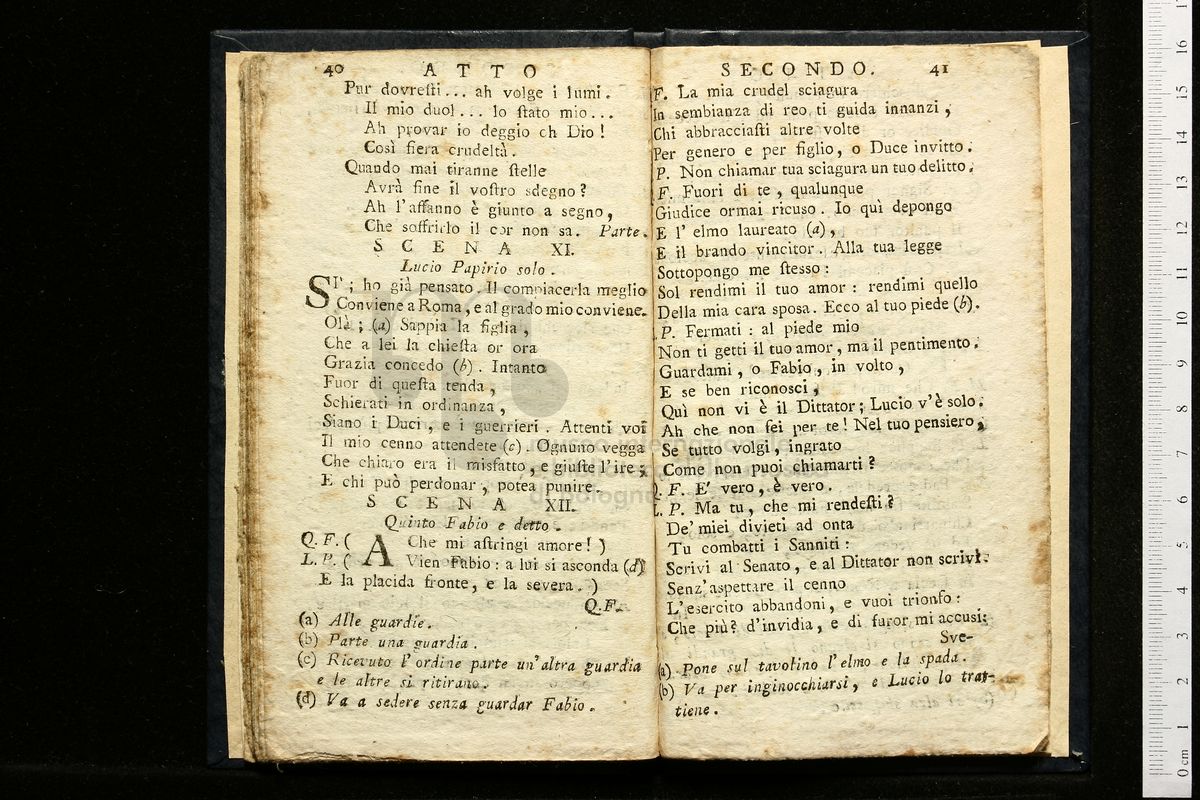 40 ATTO
Pur dovresti... ah volge i lumi.
Il mio duol... lo stato mio...
Ah provar io deggio oh Dio!
Così fiera crudeltà.
Quando mai tiranne stelle
Avrà fine il vostro sdegno?
Ah l'affanno è giunto a segno,
Che soffrirlo il cor non sa. Parte.
SCENA XI.
Lucio Papirio solo.
SI'; ho già pensato. Il compiacerla meglio
Conviene a Roma, e al grado mio conviene.
Olà; (a) Sappia la figlia,
Che a lei la chiesta or ora
Grazia concedo (b). Intanto
Fuor di questa tenda,
Schierati in ordinanza,
Siano i Duci, e i guerrieri. Attenti voi
Il mio cenno attendete (c). Ognuno vegga
Che chiaro era il misfatto, e giuste l'ire;
E chi può perdonar, potea punire.
SCENA XII.
Quinto Fabio e detto.
Q. F. ( A Che mi astringi amore! )
L. P. ( Vien Fabio: a lui si asconda (d)
E la placida fronte, e la severa. )
Q. F.
(a) Alle guardie.
(b) Parte una guardia.
(c) Ricevuto l'ordine parte un'altra guardia
e le altre si ritirano.
(d) Va a sedere senza guardar Fabio.
SECONDO. 41
F. La mia crudel sciagura
In sembianza di reo ti guida innanzi,
Chi abbracciasti altre volte
Per genero e per figlio, o Duce invitto.
P. Non chiamar tua sciagura un tuo delitto.
F. Fuori di te, qualunque
Giudice ormai ricuso. Io quì depongo
E l'elmo laureato (a),
E il brando vincitor. Alla tua legge
Sottopongo me stesso:
Sol rendimi il tuo amor: rendimi quello
Della mia cara sposa. Ecco al tuo piede (b).
P. Fermati: al piede mio
Non ti getti il tuo amor, ma il pentimento.
Guardami, o Fabio, in volto,
E se ben riconosci,
Quì non vi è il Dittator; Lucio v'è solo.
Ah che non sei per te! Nel tuo pensiero,
Se tutto volgi, ingrato
Come non puoi chiamarti?
Q. F. E' vero, è vero.
L. P. Ma tu, che mi rendesti?
De' miei divieti ad onta
Tu combatti i Sanniti:
Scrivi al Senato, e al Dittator non scrivi.
Senz'aspettare il cenno
L'esercito abbandoni, e vuoi trionfo:
Che più? d'invidia, e di furor mi accusi:
Sve-
(a) Pone sul tavolino l'elmo e la spada.
(b) Va per inginocchiarsi, e Lucio lo trat-
tiene.